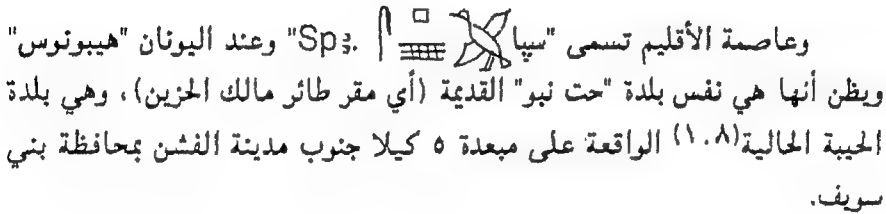 وعاصمة الأقليم تسمى "سيپا .Spꜣ" وعند اليونان "هيبونوس"
ويظن أنها هي نفس بلدة "حت نبو" القديمة (أي مقر طائر مالك الحزين)، وهي بلدة
الحيبة الحالية(١٠٨) الواقعة على مبعدة ٥ كيلا جنوب مدينة الفشن بمحافظة بني
سويف.